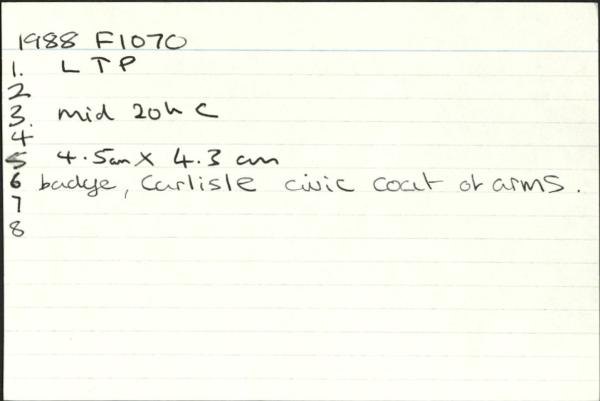 1988 F1070
1. LTP
2
3. mid 20th C
4
5 4.5cm X 4.3 cm
6 badge, Carlisle civic coat of arms.
7
8